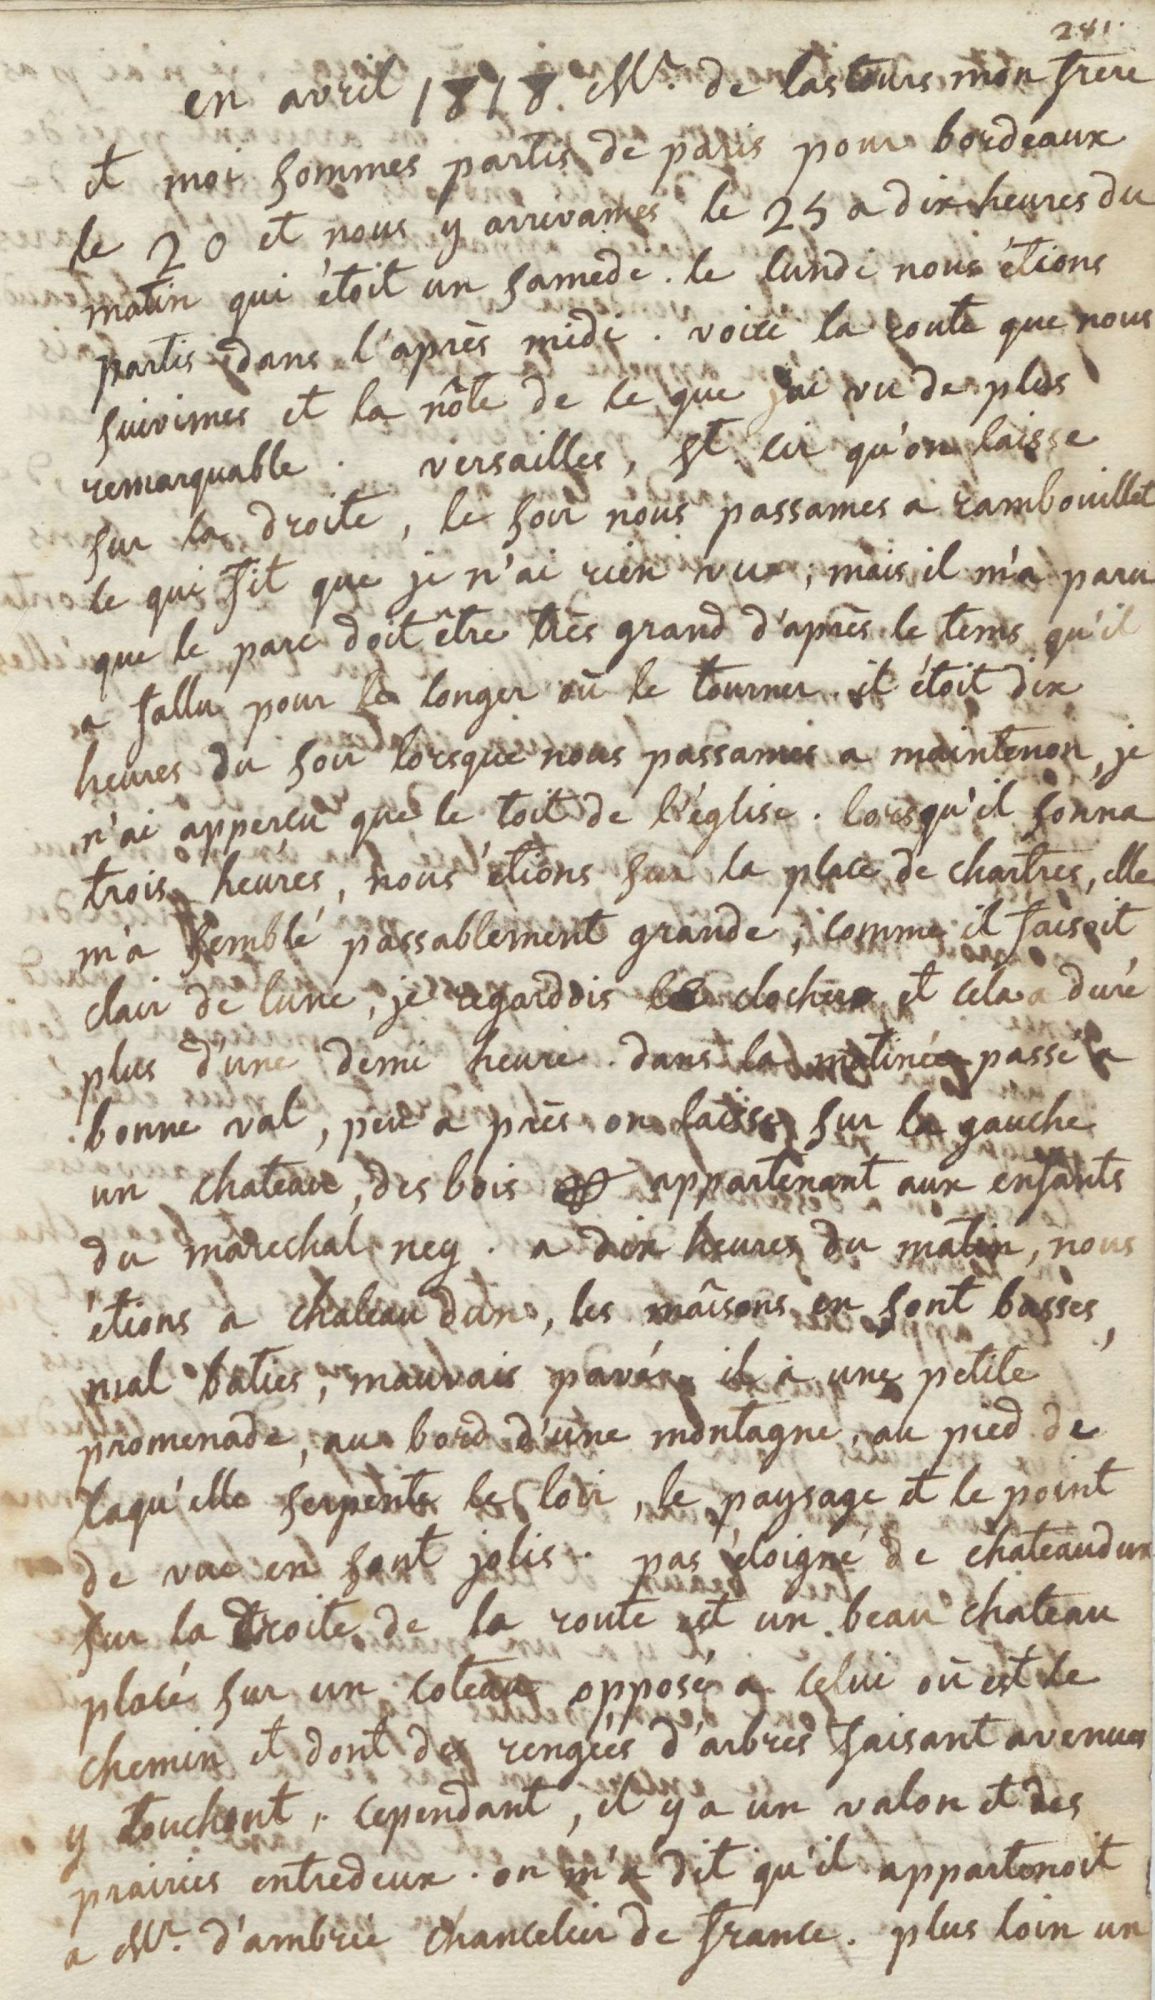 281.
en avril 1818. Mr. de lastours mon frere
et moi sommes partis de paris pour bordeaux
le 20 et nous y arrivames le 25 a dix heures du
matin qui étoit un samedi. le lundi nous étions
partis dans l'après midi. voici la route que nous
suivimes et la nôte de ce que j'ai vu de plus
remarquable. versailles, st. cir qu'on laisse
sur la droite, le soir nous passames a rambouillet
ce qui fit que je n'ai rien vu, mais il m'a paru
que le parc doit être très grand d'après le tems qu'il
a fallu pour le longer où le tourner. il étoit dix
heures du soir lorsque nous passames a maintenon, je
n'ai apperçu que le toit de l'église. lorsqu'il sonna
trois heures, nous étions sur la place de chartres, elle
m'a semblé passablement grande, comme il faisoit
clair de lune, je regardois le clocher, et cela a duré
plus d'une demi heure. dans la matinée passé a
bonne val, peu a près on laisse sur la gauche
un chateau, des bois appartenant aux enfants
du marechal ney. a dix heures du matin, nous
étions a chateau dun, les mâisons en sont basses,
mal baties, mauvais pavés il a une petite
promenade, au bord d'une montagne, au pied de
laqu'elle serpente le loir, le paysage et le point
de vue en sont jolis. pas éloigné de chateaudun
sur la droite de la route est un beau chateau
placé sur un coteau opposé a celui où est le
chemin et dont des rengées d'arbres faisant avenues
y touchent, cependant, il y a un valon et des
prairies entredeux. on m'a dit qu'il appartenoit
a Mr. d'ambrée chancelier de france. plus loin un